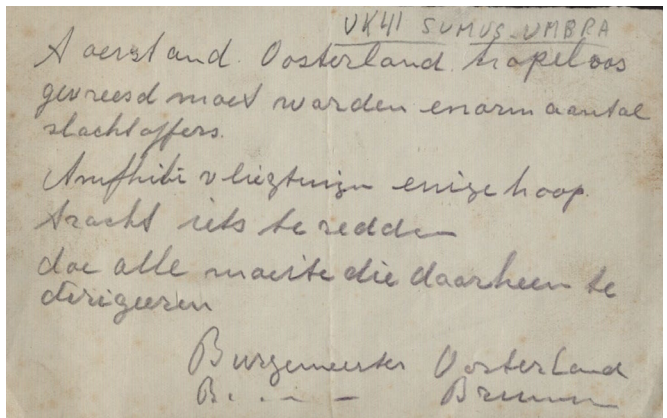 VK41 SUMUS UMBRA
Toestand Oosterland hopeloos
gevreesd moet worden enorm aantal
slachtoffers.
Amfhibi vliegtuigen enige hoop
tracht iets te redden
doe alle moeite die daarheen te
dirigeeren
Burgemeester Oosterland
B. . _ . _